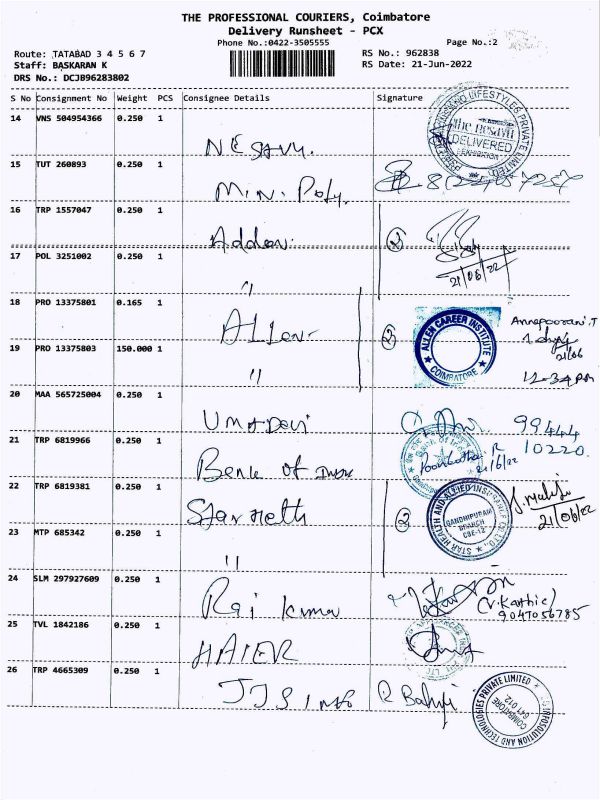 THE PROFESSIONAL COURIERS, Coimbatore
Delivery Runsheet - PCX
Phone No.:0422-3505555
Page No.:2
Route: TATABAD 3 4 5 6 7
RS No.: 962838
Staff: BASKARAN K
RS Date: 21-Jun-2022
DRS No.: DCJB96283802
S No Consignment No Weight PCS Consignee Details Signature
14 VNS 504954366 0.250 1 NESAVU.
DELIVERED
15 TUT 260893 0.250 1 M.N. Poly.
16 TRP 1557047 0.250 1 2
21/06/22
17 POL 3251002 0.250 1 "
18 PRO 13375801 0.165 1 Allen 2
ALLEN CAREER INSTITUTE COIMBATORE
Annapoorani.T
21/06
19 PRO 13375803 150.000 1 "
20 MAA 565725004 0.250 1 Umadevi 99444
10220
21 TRP 6819966 0.250 1 Bank of
21/6/22
22 TRP 6819381 0.250 1 Star Helth 2
STAR HEALTH AND ALLIED INSURANCE CO. LTD.
GANDHIPURAM
BRANCH
CBE-12
21/06/22
23 MTP 685342 0.250 1 "
24 SLM 297927609 0.250 1 Raj Kumar
(V.Karthic)
9047056785
25 TVL 1842186 0.250 1 HAIER
26 TRP 4665309 0.250 1 JJS Info R Balaji
INFOSOLUTION AND TECHNOLOGIES PRIVATE LIMITED
COIMBATORE
641 012